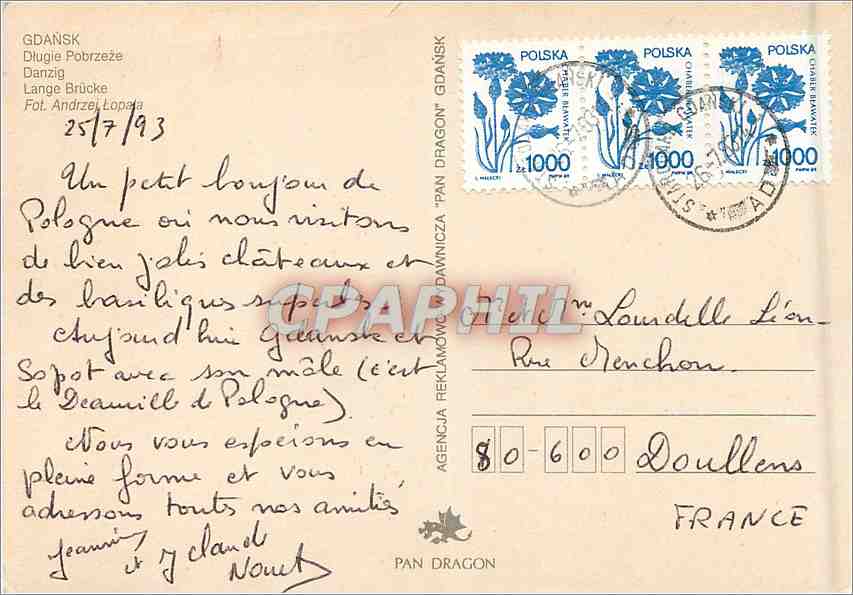 GDAŃSK
Długie Pobrzeże
Danzig
Lange Brücke
Fot. Andrzej Łopata
25/7/93
Un petit bonjour de
Pologne où nous visitons
de bien jolis châteaux et
des basiliques superbes.
Aujourd'hui Gdansk et
Sopot avec son môle (c'est
le Deauville de Pologne).
Nous vous espérons en
pleine forme et vous
adressons toutes nos amitiés
Jeannine
et J Claude
AGENCJA REKLAMOWO WYDAWNICZA "PAN DRAGON" GDAŃSK
PAN DRAGON
POLSKA
CHABER BŁAWATEK
zł 1000
S. MAŁECKI
PWPW 89
POLSKA
CHABER BŁAWATEK
zł 1000
S. MAŁECKI
PWPW 89
POLSKA
CHABER BŁAWATEK
zł 1000
S. MAŁECKI
PWPW 89
GDAŃSK
GDAŃSK
AD
M et Mme Lourdelle Léon
Rue Menchon
80-600 Doullens
FRANCE
CPAPHIL